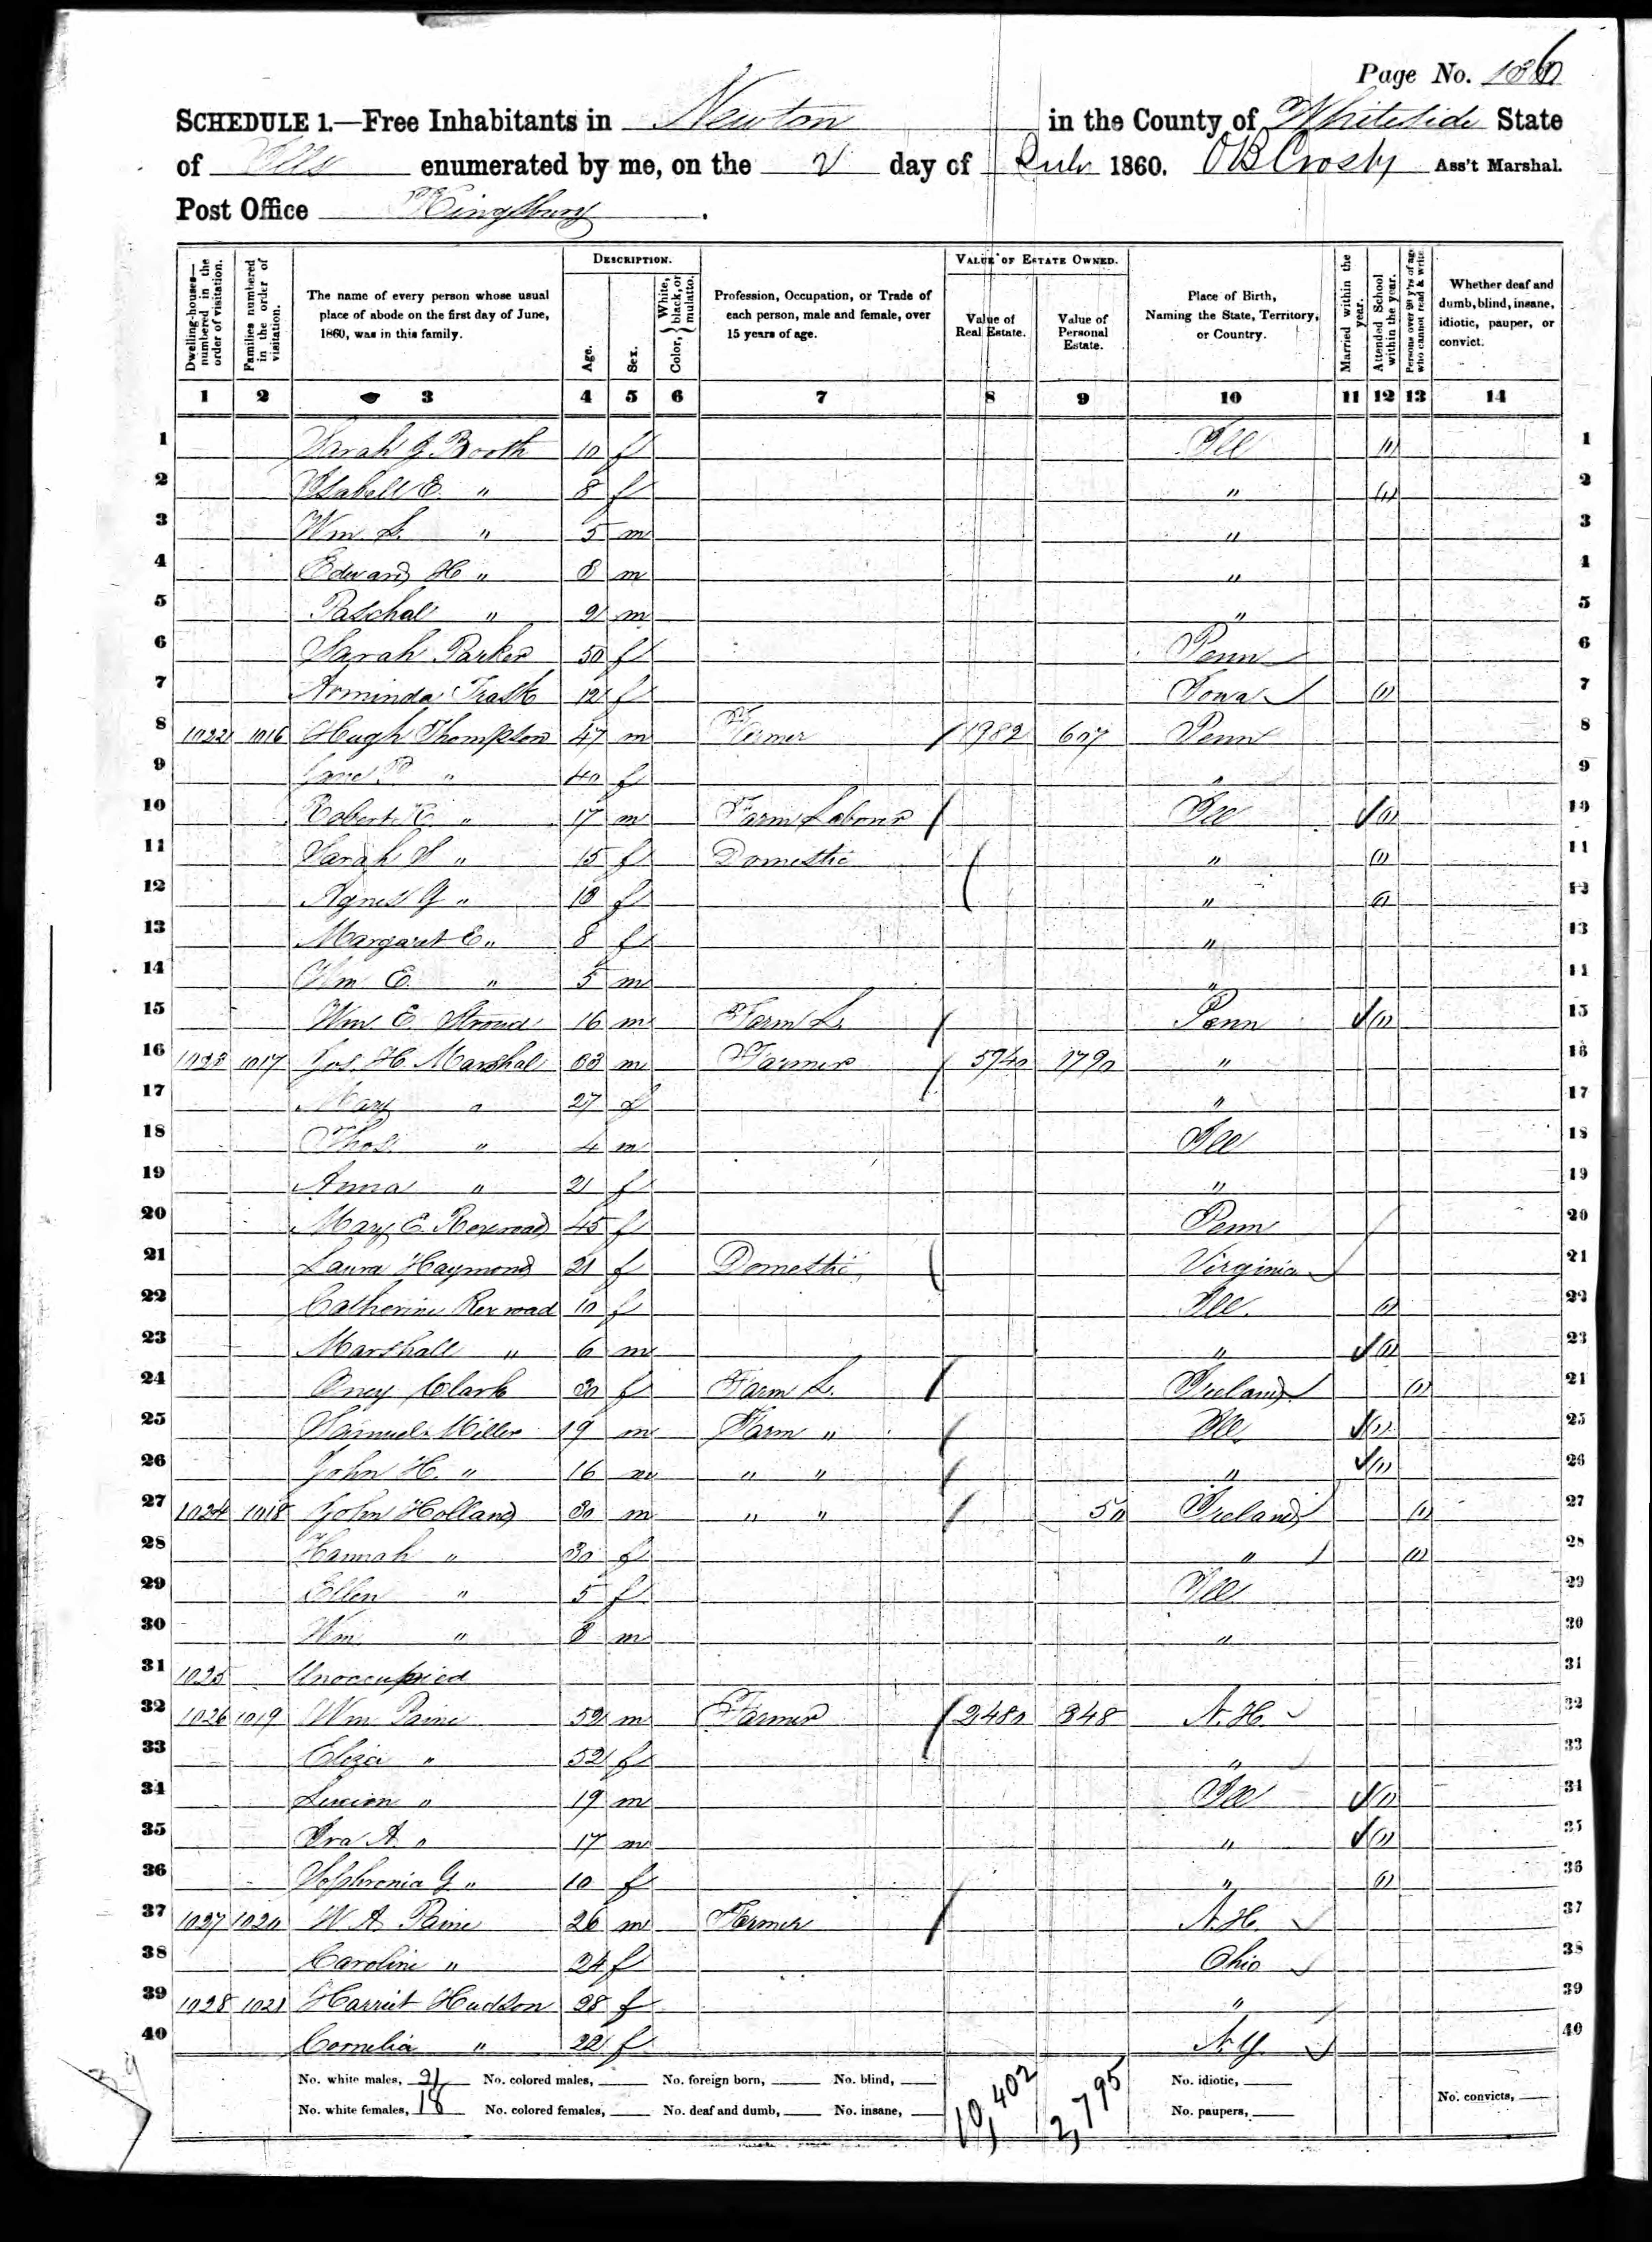 Page No. 136
SCHEDULE 1.—Free Inhabitants in Newton in the County of Whiteside State
of Ills enumerated by me, on the 2 day of July 1860. O B Crosby Ass't Marshal.
Post Office Kingsbury.
Dwelling-houses—numbered in the order of visitation.
Families numbered in the order of visitation.
The name of every person whose usual place of abode on the first day of June, 1860, was in this family.
DESCRIPTION.
Age.
Sex.
Color, { White, black, or mulatto.
Profession, Occupation, or Trade of each person, male and female, over 15 years of age.
VALUE OF ESTATE OWNED.
Value of Real Estate.
Value of Personal Estate.
Place of Birth, Naming the State, Territory, or Country.
Married within the year.
Attended School within the year.
Persons over 20 y'rs of age who cannot read & write.
Whether deaf and dumb, blind, insane, idiotic, pauper, or convict.
1 2 3 4 5 6 7 8 9 10 11 12 13 14
1 Sarah J. Booth 10 f Ill " 1
2 Isabell E. " 8 f " " 2
3 Wm L. " 5 m " 3
4 Edward H " 3 m " 4
5 Paschal " 2 m " 5
6 Sarah Parker 50 f Penn 6
7 Arminda Trask 12 f Iowa " 7
8 1022 1016 Hugh Thompson 47 m Farmer 1982 607 Penn 8
9 Jane P " 40 f " 9
10 Robert R. " 17 m Farm Labour Ill " 10
11 Sarah S " 15 f Domestic " " 11
12 Agnes G " 10 f " " 12
13 Margaret E " 8 f " 13
14 Wm E. " 5 m " 14
15 Wm E. Stroud 16 m Farm L. Penn " 15
16 1023 1017 Jos. H. Marshal 33 m Farmer 5940 1790 " 16
17 Mary " 27 f " 17
18 Thos. " 4 m Ill 18
19 Anna " 2 f " 19
20 Mary E. Rexroad 45 f Penn 20
21 Laura Haymond 21 f Domestic Virginia 21
22 Catherine Rexroad 10 f Ill. " 22
23 Marshall " 6 m " " 23
24 Oney Clark 30 f Farm L. Ireland " 24
25 Samuel Miller 19 m Farm " Ill " 25
26 John H. " 16 m " " " " 26
27 1024 1018 John Holland 30 m " " 50 Ireland " 27
28 Hannah " 30 f " " 28
29 Ellen " 5 f Ill 29
30 Wm " 3 m " 30
31 1025 Unoccupied 31
32 1026 1019 Wm Paine 52 m Farmer 2480 348 N.H. 32
33 Eliza " 52 f " 33
34 Lucien " 19 m Ill " 34
35 Ira A. " 17 m " " 35
36 Sophronia G " 10 f " " 36
37 1027 1020 W A Paine 26 m Farmer N.H. 37
38 Caroline " 24 f Ohio 38
39 1028 1021 Harriet Hudson 28 f " 39
40 Cornelia " 22 f N.Y. 40
No. white males, 21 No. colored males, No. foreign born, No. blind, 10,402 2,795 No. idiotic, No. convicts,
No. white females, 18 No. colored females, No. deaf and dumb, No. insane, No. paupers,
39